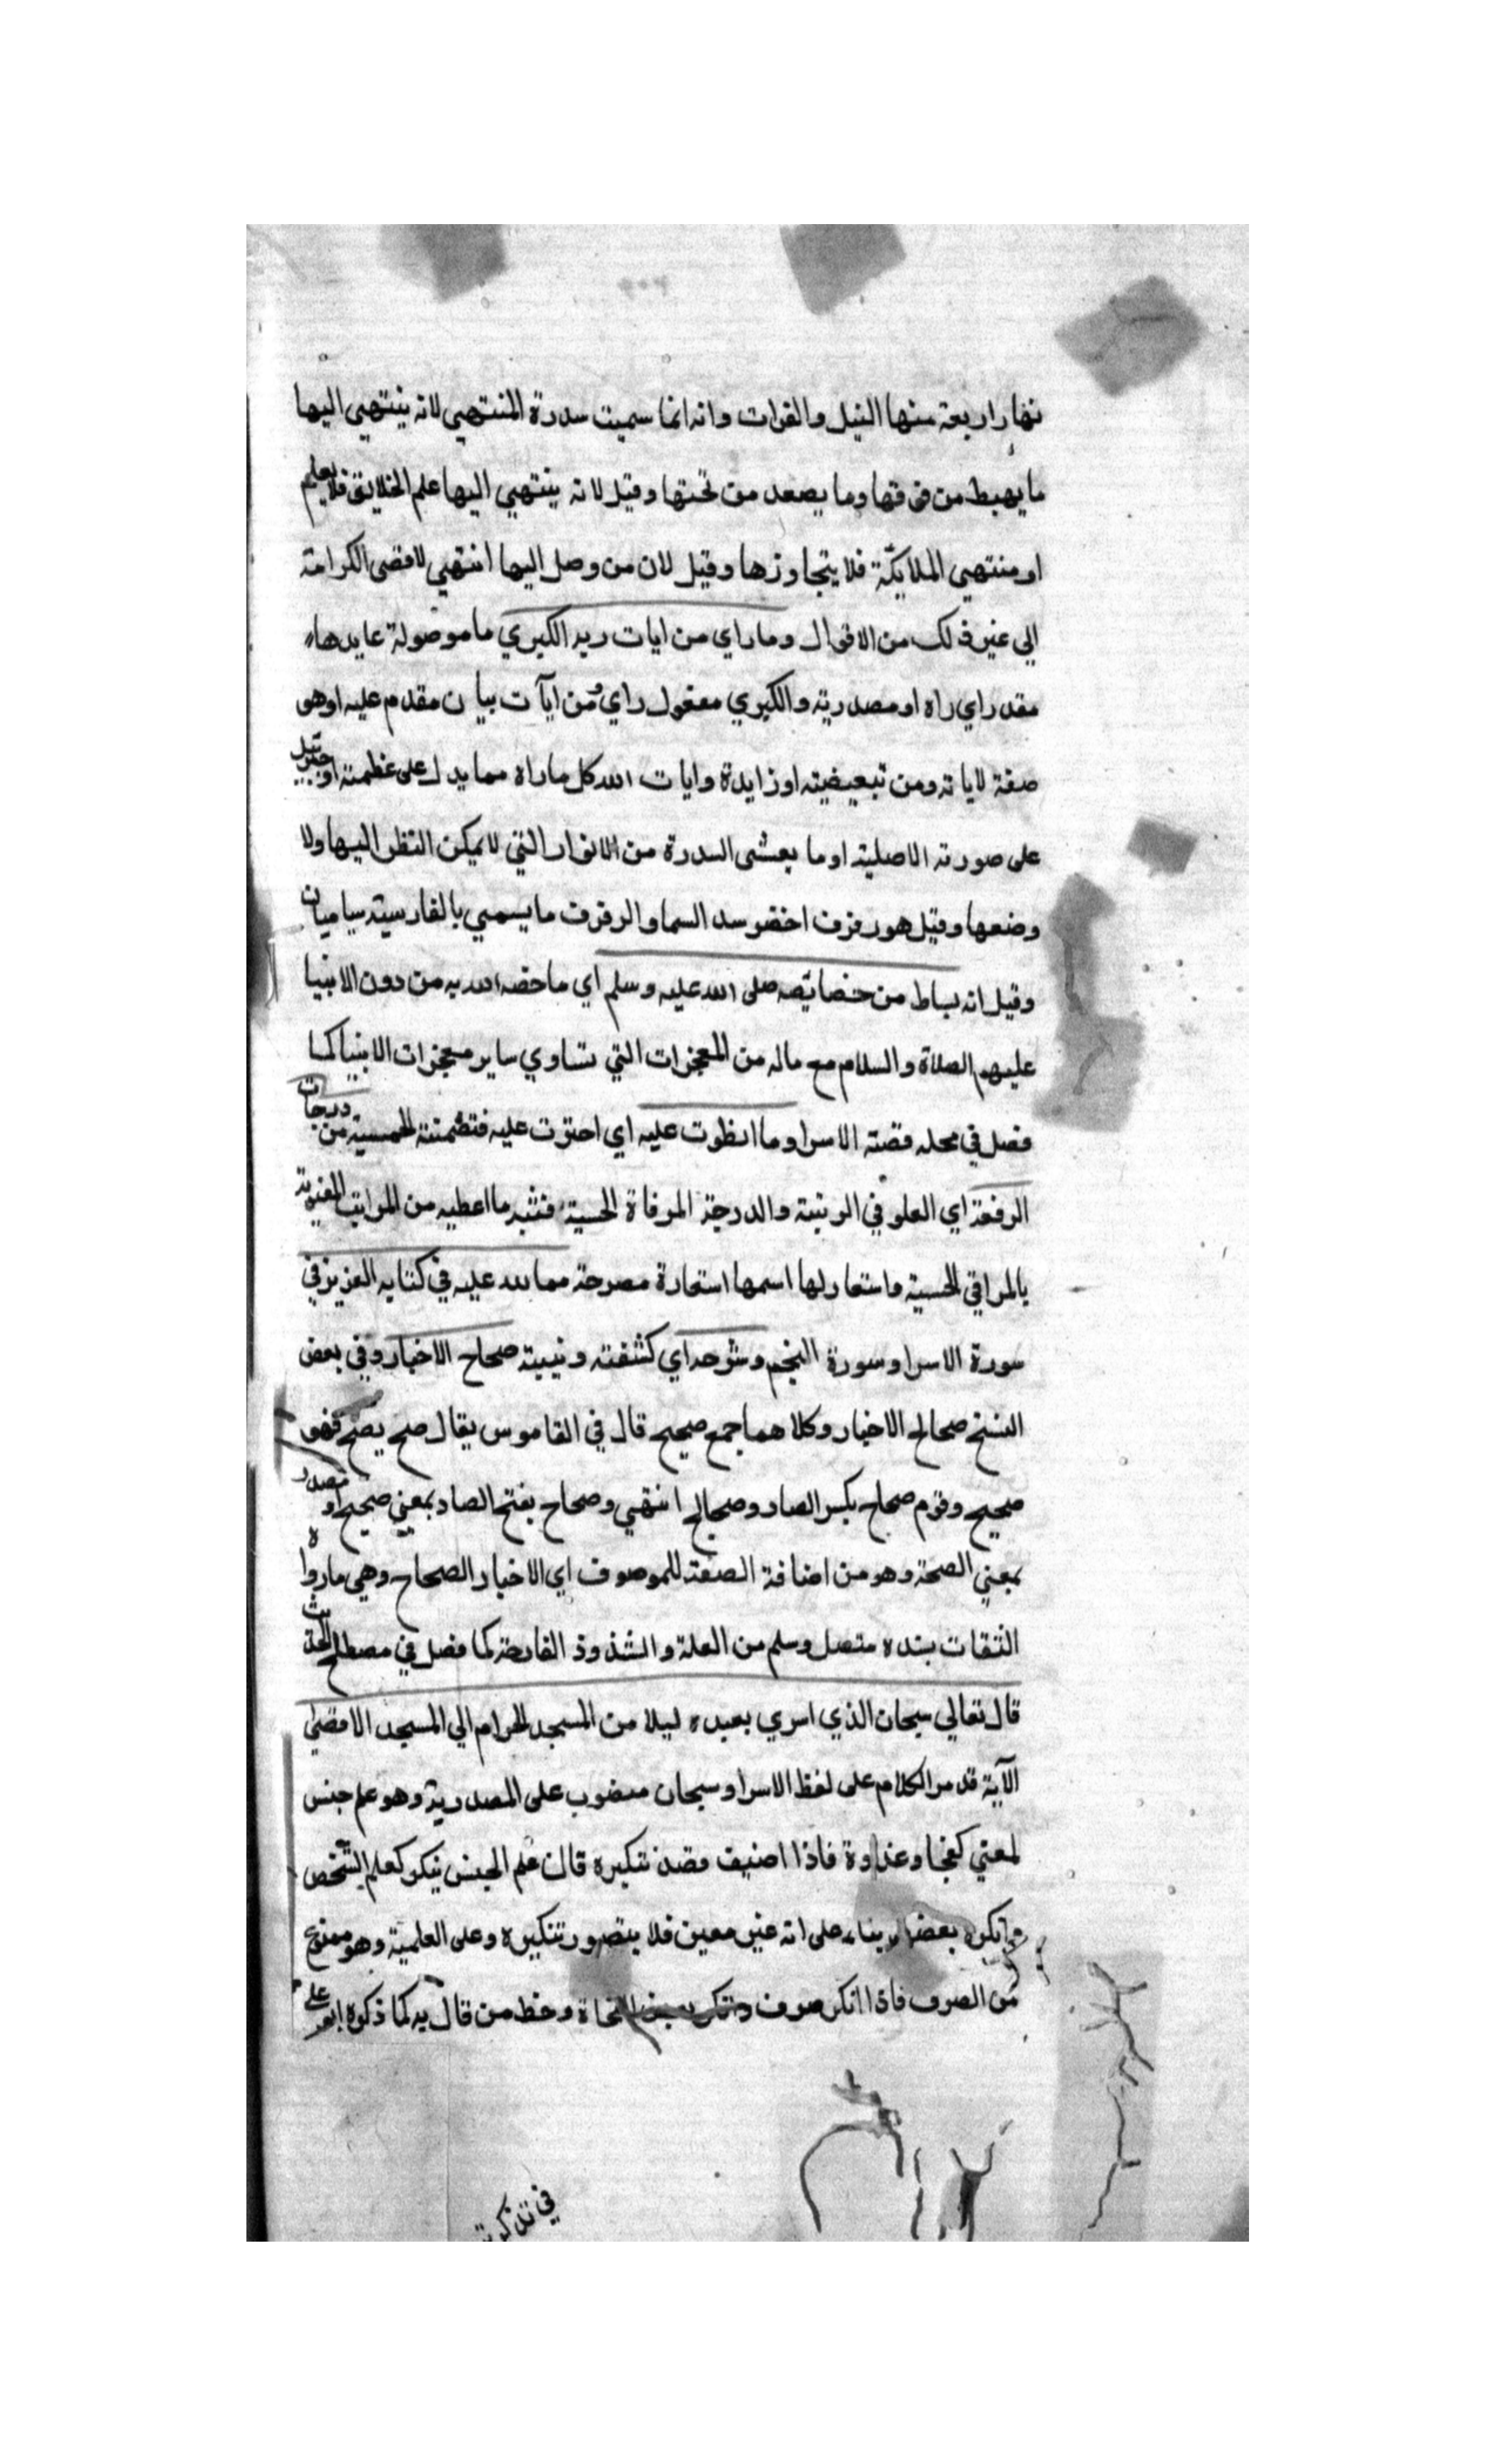 نهارا ربعة منها النيل والفرات وانه انما سميت سدرة المنتهي لانه ينتهي اليها
ما يهبط من فوقها وما يصعد من تحتها وقيل لانه ينتهي اليها علم الخلايق فلا يعلم
او منتهي الملايكة فلا يتجاوزها وقيل لان من وصل اليها انتهي لاقصى الكرامة
الي غير ذلك من الاقوال وما راي من ايات ربه الكبري ما موصولة عايدها
مقدر اي راه او مصدرية والكبري مفعول راي ومن آيات بيان مقدم عليه او هو
صفة لاياته ومن تبعيضيه او زايدة وايات الله كل ماراه مما يدل على عظمته او جبريل
على صورته الاصليه او ما يغشى السدرة من الانوار التي لا يمكن النظر اليها ولا
وضعها وقيل هو رفرف اخضر سد السما والرفرف ما يسمي بالفارسية سياميان
وقيل انه بساط من خصايصه صلى الله عليه وسلم اي ما خصه الله به من دون الانبيا
عليهم الصلاة والسلام مع ماله من المعجزات التي تساوي ساير معجزات الانبيا كما
فصل في محله قصته الاسرا وما انطوت عليه اي احتوت عليه فتضمنته الخمسية من درجات
الرفعة اي العلو في الرتبة والدرجة المرقاة الحسية فشبه ما اعطيه من المراتب المعنوية
بالمراقي الحسية واستعار لها اسمها استعارة مصرحة مما الله عليه في كتابه العزيز في
سورة الاسرا وسورة النجم وشرحه اي كشفته وبينته صحاح الاخبار وفي بعض
النسخ صحائح الاخبار وكلاهما جمع صحيح قال في القاموس يقال صح يصح فهو
صحيح وقوم صحاح بكسر الصاد وصحائح انتهي وصحاح بفتح الصاد بمعني صحيح او مصدر
بمعني الصحة وهو من اضافة الصفة للموصوف اي الاخبار الصحاح وهي مارواه
الثقات بسنده متصل وسلم من العلة والشذوذ القادحة كما فصل في مصطلح الحديث
قال تعالي سبحان الذي اسري بعبده ليلا من المسجد الحرام الي المسجد الاقصى
الآية قد مر الكلام على لفظ الاسرا وسبحان منصوب على المصدرية وهو علم جنس
لمعني كفجار وغداوة فاذا اضيف قصد تنكيره قال علم الجنس ينكر كعلم الشخص
وانكره بعضهم بناء على انه غير معين فلا يتصور تنكيره وعلى العلمية وهو ممنوع
من الصرف فاذا انكر صرف النحاة وخط من قال به كما ذكره ابو علي
في تذكرته